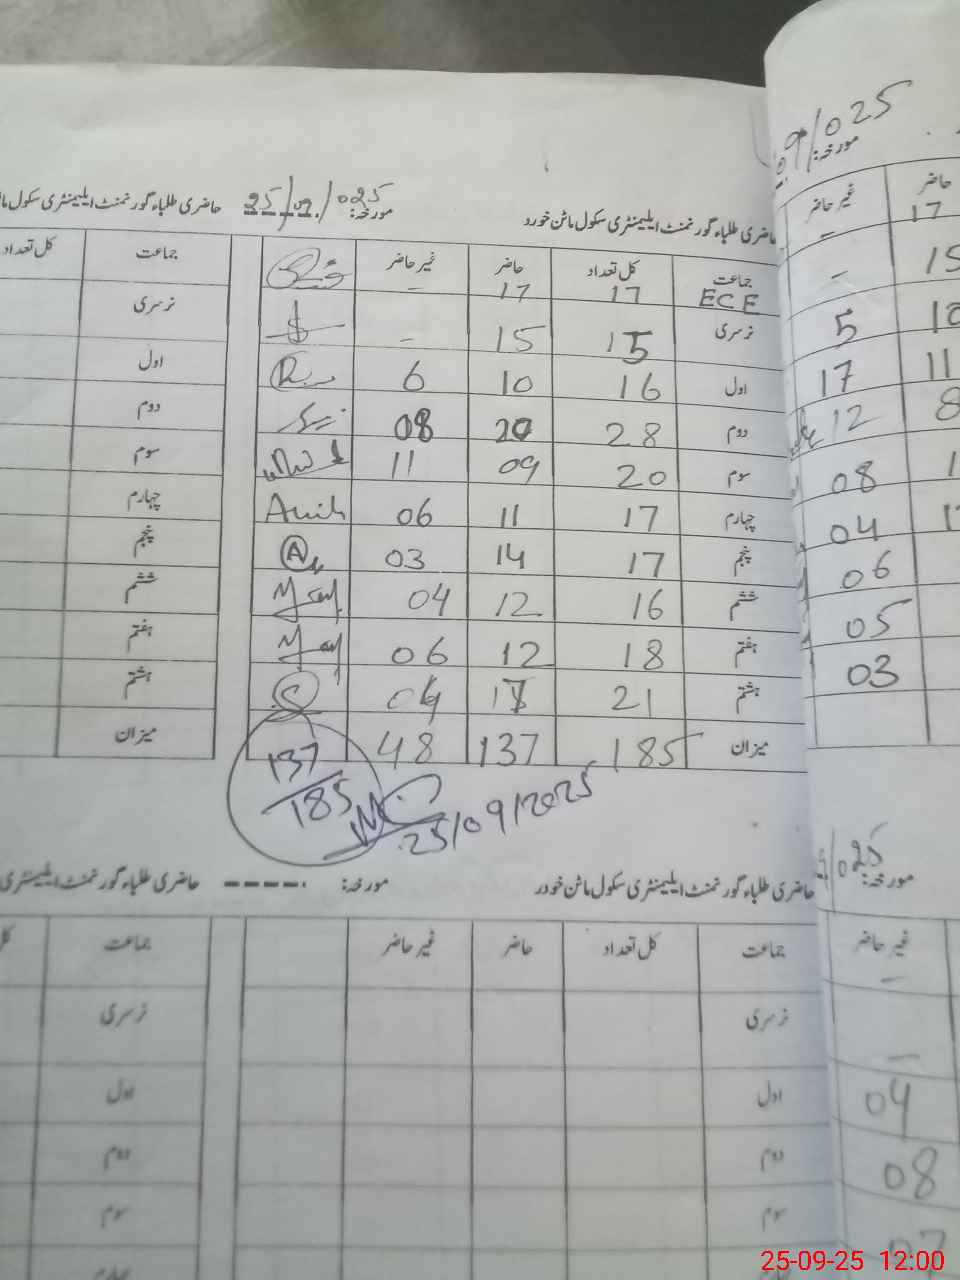 حاضری طلباء گورنمنٹ ایلیمنٹری سکول ماٹن خورد مورخہ: 25/09/025
جماعت کل تعداد حاضر غیر حاضر
ECE 17 17 -
نرسری 15 15 -
اول 16 10 6
دوم 28 20 08
سوم 20 09 11
چہارم 17 11 06
پنجم 17 14 03
ششم 16 12 04
ہفتم 18 12 06
ہشتم 21 17 04
میزان 185 137 48
137
185
25/09/2025
حاضری طلباء گورنمنٹ ایلیمنٹری سکول ماٹن خورد مورخہ:
جماعت کل تعداد حاضر غیر حاضر
نرسری
اول
دوم
سوم
حاضری طلباء گورنمنٹ ایلیمنٹری سکول
جماعت کل تعداد
نرسری
اول
دوم
سوم
چہارم
پنجم
ششم
ہفتم
ہشتم
میزان
حاضری طلباء گورنمنٹ ایلیمنٹری
جماعت
نرسری
اول
دوم
سوم
چہارم
09/025 مورخہ:
حاضر غیر حاضر
17 -
15 -
5
11 17
8 12
08
04
06
05
03
مورخہ: 025
غیر حاضر
-
-
04
08
25-09-25 12:00